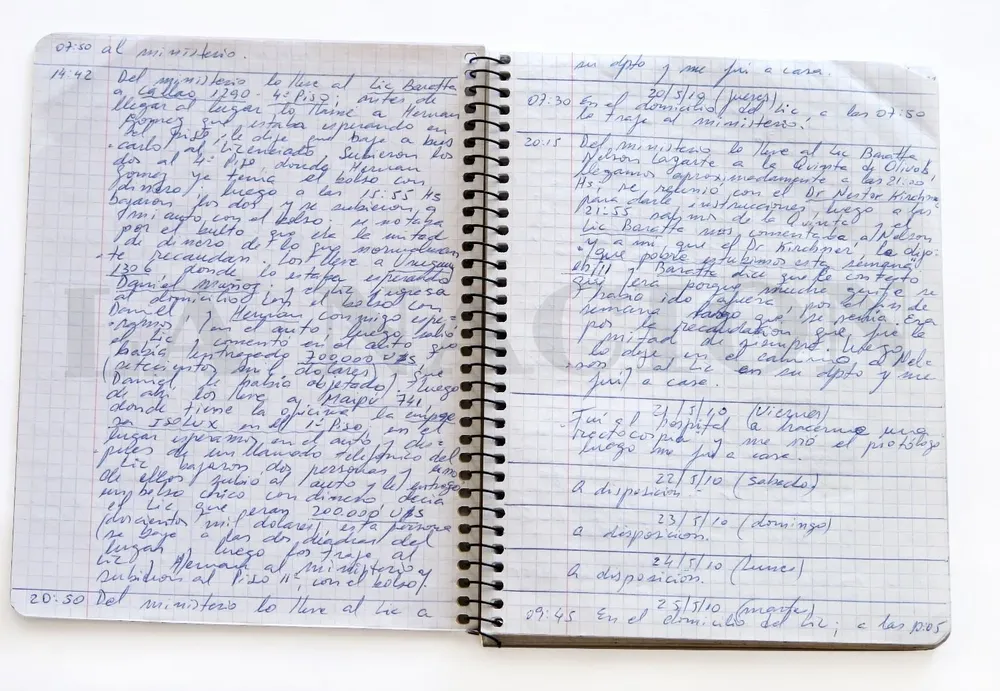 07:50 al ministerio.
14:42 Del ministerio lo lleve al Lic Baratta
a Callao 1290 - 4º Piso; antes de
llegar al lugar lo llamé a Hernan
Gomez que estaba esperando en
el Piso, le dije que baje a bus
carlo al Licenciado subieron los
dos al 4º Piso donde Hernan
Gomez ya tenia el bolso con
dinero; luego a las 15:55 Hs
bajaron los dos y se subieron a
mi auto con el bolso, se notaba
por el bulto que era la mitad
de dinero de lo que normalmen
te recaudan. Los lleve a Uruguay
1306, donde lo estaba esperando
Daniel Muñoz; y el Lic ingresa
al domicilio con el bolso con
Daniel y Hernan conmigo espe-
ramos en el auto luego salió
el Lic y comentó en el auto que
habia entregado 700.000 U$S
(setecientos mil dolares) que
Daniel le habia objetado. Luego
de ahi los lleve a Maipu 741,
donde tiene la oficina la empre
sa ISOLUX en el 1º Piso, en el
lugar esperamos en el auto y des-
pues de un llamado telefonico del
Lic bajaron dos personas y uno
de ellos subió al auto y le entregó
un bolso chico con dinero decia
el Lic que eran 200.000 U$S
(doscientos mil dolares), esta persona
se bajo a las dos cuadras del
lugar y luego los traje al
Lic y Hernan al ministerio y
subieron al Piso 11º con el bolso
20:50 Del ministerio lo lleve al Lic a
su dpto y me fui a casa.
20/5/10 (jueves)
07:30 En el domicilio del Lic a las 07:50
lo traje al ministerio.
20:15 Del ministerio lo lleve al Lic Baratta y
Nelson Lazarte a la Quinta de Olivos
llegamos aproximadamente a las 21:00
Hs; se reunió con el Dr Nestor Kirchner
para darle instrucciones, luego a las
21:55 salimos de la Quinta y el
Lic Baratta nos comentaba a Nelson
y a mi, que el Dr Kirchner le dijo:
"que pobre estubimos esta semana"
eh!!! y Baratta dice que le contestó
que era porque mucha gente se
habia ido afuera por el fin de
semana largo que se venia. Era
por la recaudacion que fue la
mitad de siempre, luego
lo deje en el camino a Nel-
son y al Lic en su dpto y me
fui a casa.
21/5/10 (Viernes)
Fui al hospital a hacerme una
rectocopia y me vió el protólogo
luego me fui a casa.
22/5/10 (sabado)
A disposicion.
23/5/10 (domingo)
a disposicion.
24/5/10 (Lunes)
A disposicion.
25/5/10 (martes)
09:45 En el domicilio del Lic; a las 10:05
LA NACION